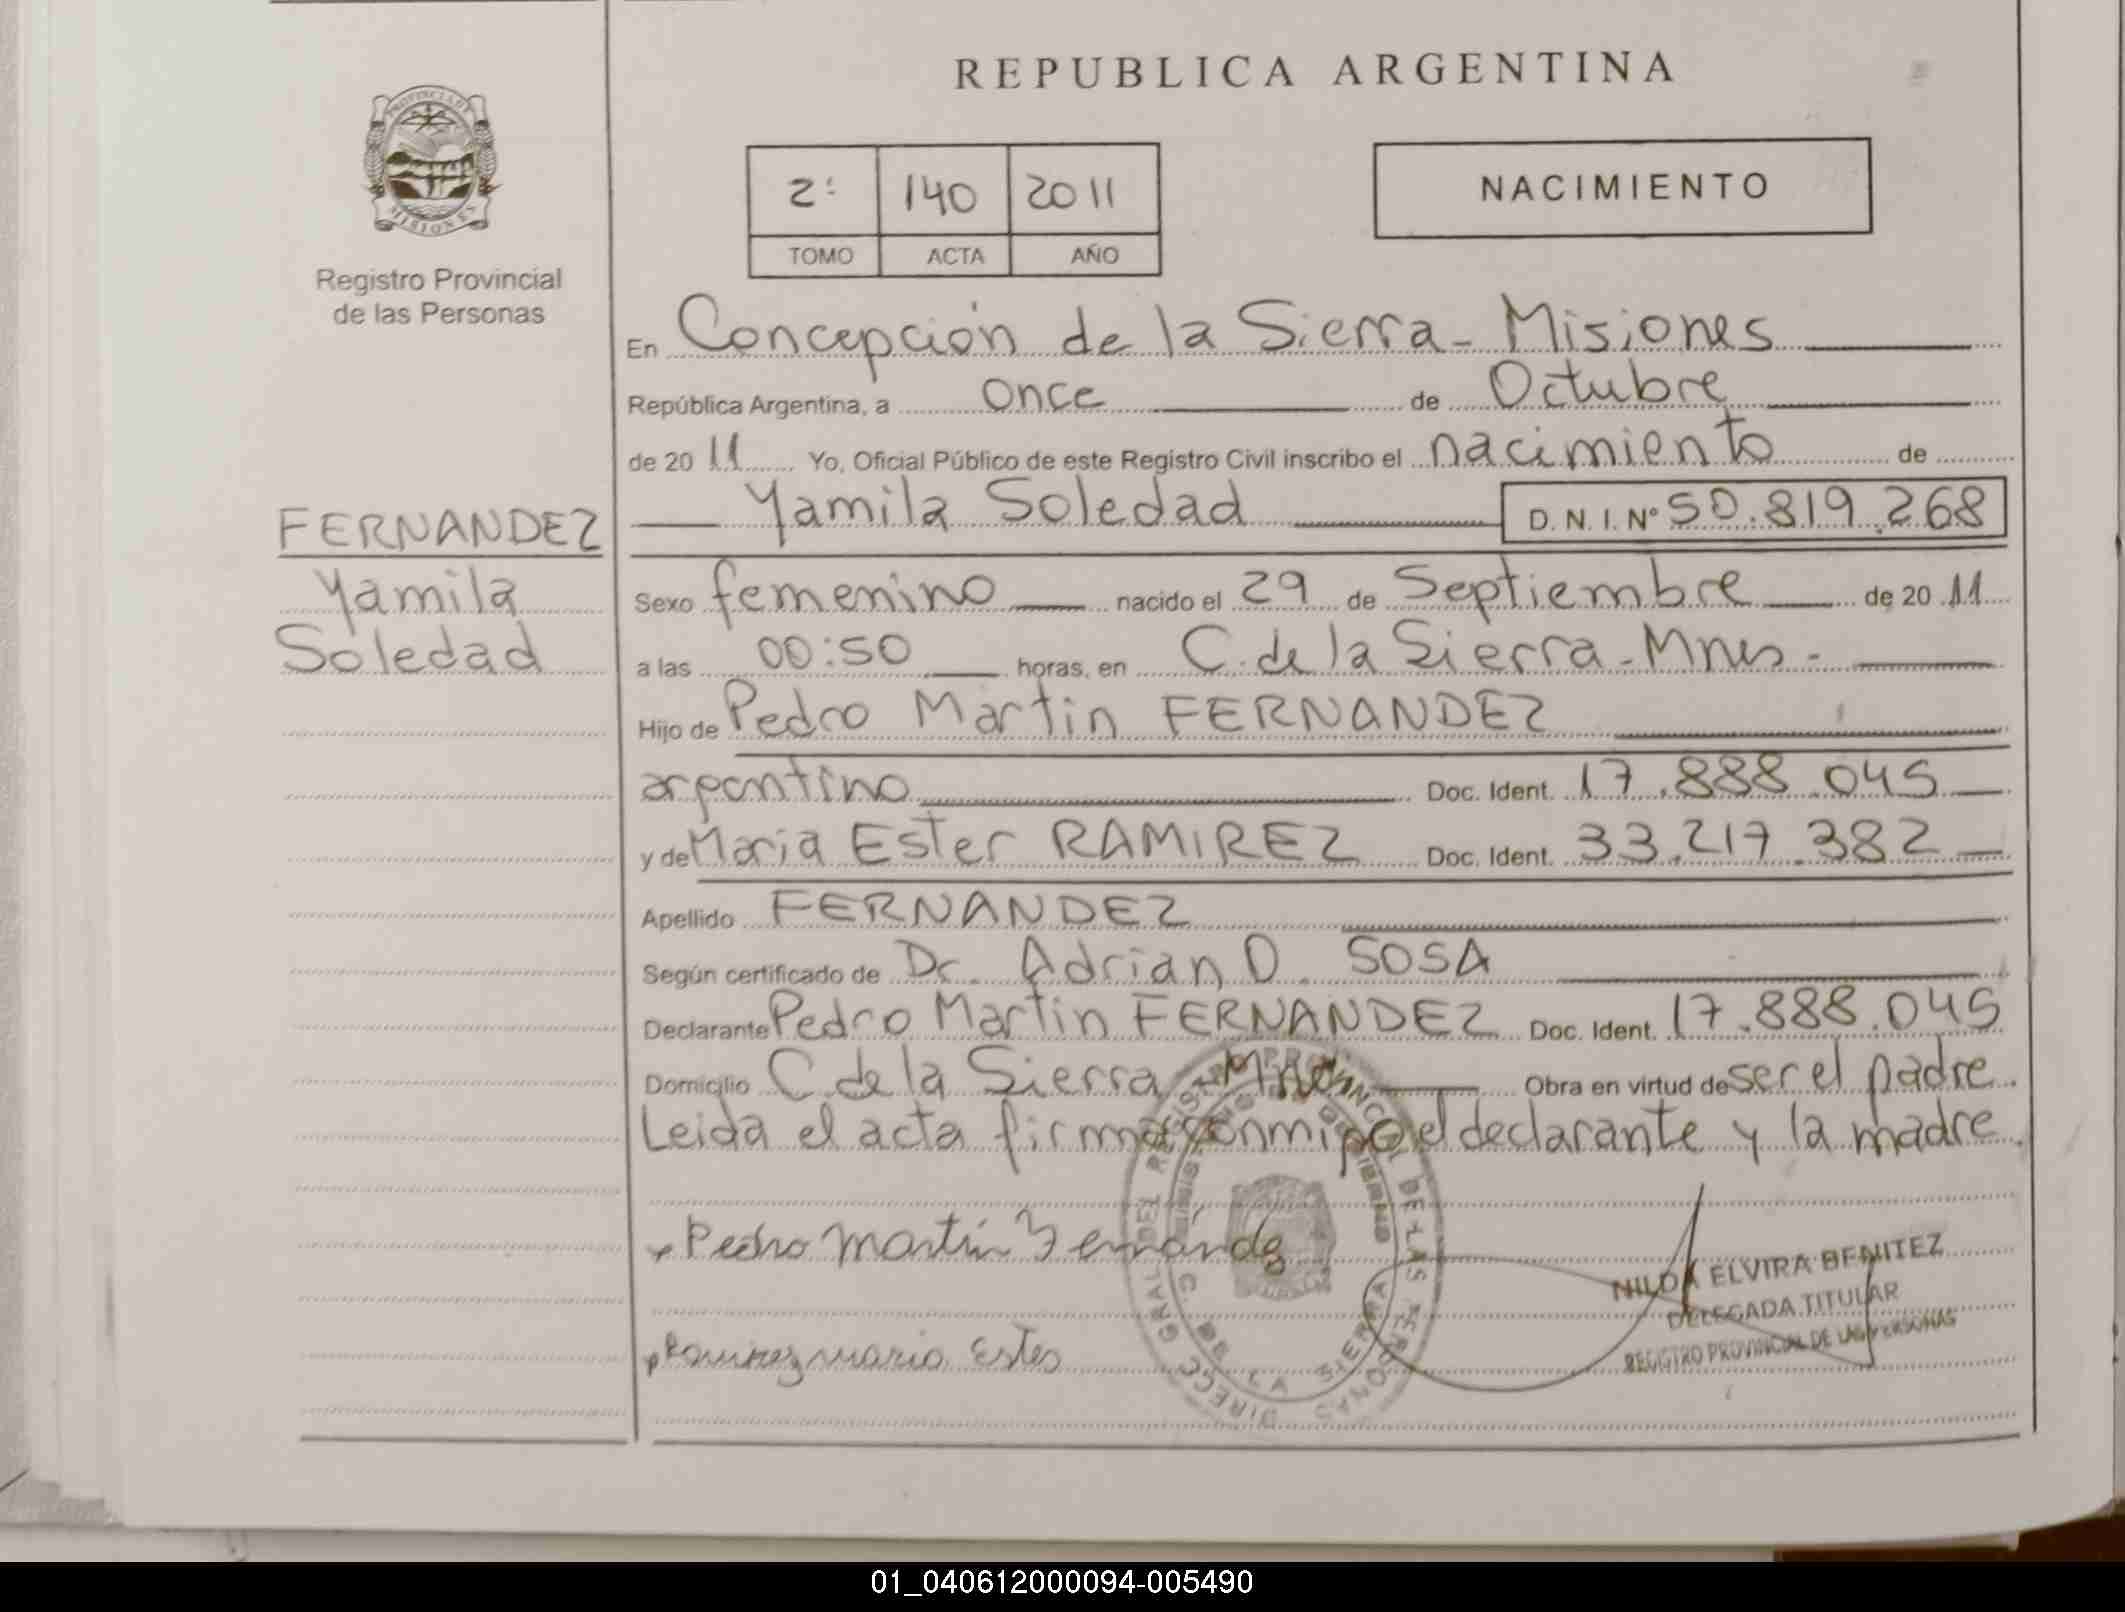 REPUBLICA ARGENTINA
PROVINCIA DE
MISIONES
Registro Provincial
de las Personas
2º 140 2011
TOMO ACTA AÑO
NACIMIENTO
En Concepción de la Sierra - Misiones
República Argentina, a once de Octubre
de 20 11 Yo, Oficial Público de este Registro Civil inscribo el nacimiento de
Yamila Soledad D. N. I. Nº 50.819.268
FERNANDEZ
Yamila
Soledad
Sexo femenino nacido el 29 de Septiembre de 20 11
a las 00:50 horas, en C. de la Sierra - Mnes -
Hijo de Pedro Martin FERNANDEZ
argentino Doc. Ident. 17.888.045
y de Maria Ester RAMIREZ Doc. Ident. 33.217.382
Apellido FERNANDEZ
Según certificado de Dr. Adrian D. SOSA
Declarante Pedro Martin FERNANDEZ Doc. Ident. 17.888.045
Domicilio C. de la Sierra Mnes Obra en virtud de ser el padre.
Leida el acta firma conmigo el declarante y la madre.
Pedro Martín Fernández
Ramirez maria Ester
NILDA ELVIRA BENITEZ
DELEGADA TITULAR
REGISTRO PROVINCIAL DE LAS PERSONAS
C. DE LA SIERRA
01_040612000094-005490